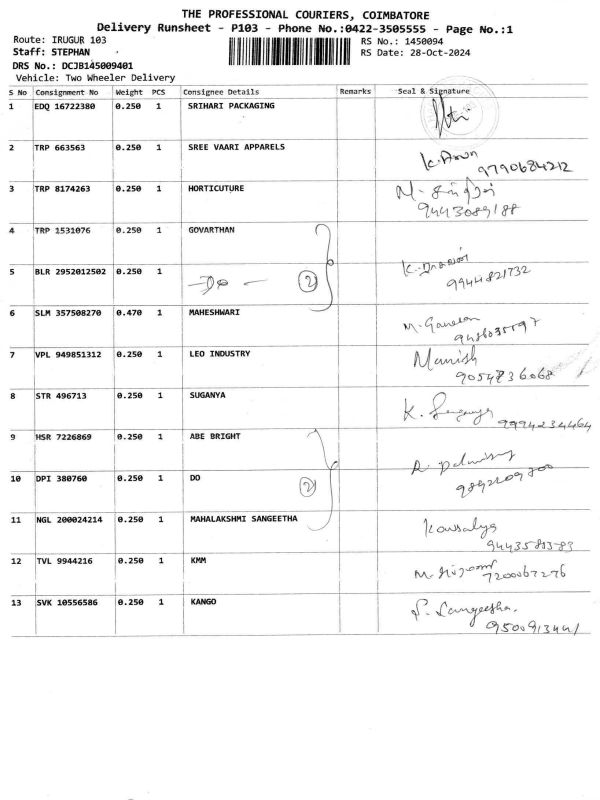 THE PROFESSIONAL COURIERS, COIMBATORE
Delivery Runsheet - P103 - Phone No.:0422-3505555 - Page No.:1
Route: IRUGUR 103
RS No.: 1450094
Staff: STEPHAN
RS Date: 28-Oct-2024
DRS No.: DCJB145009401
Vehicle: Two Wheeler Delivery
S No Consignment No Weight PCS Consignee Details Remarks Seal & Signature
1 EDQ 16722380 0.250 1 SRIHARI PACKAGING
2 TRP 663563 0.250 1 SREE VAARI APPARELS K. Arun
9790684212
3 TRP 8174263 0.250 1 HORTICUTURE
9443089188
4 TRP 1531076 0.250 1 GOVARTHAN
5 BLR 2952012502 0.250 1 - Do - 2
9944821732
6 SLM 357508270 0.470 1 MAHESHWARI M. Ganesan
7 VPL 949851312 0.250 1 LEO INDUSTRY Manish
9054836068
8 STR 496713 0.250 1 SUGANYA K. Suganya
9994234464
9 HSR 7226869 0.250 1 ABE BRIGHT
10 DPI 380760 0.250 1 DO 2
11 NGL 200024214 0.250 1 MAHALAKSHMI SANGEETHA Kowsalya
9443580383
12 TVL 9944216 0.250 1 KMM
7200067276
13 SVK 10556586 0.250 1 KANGO S. Sangeetha.
9500913441